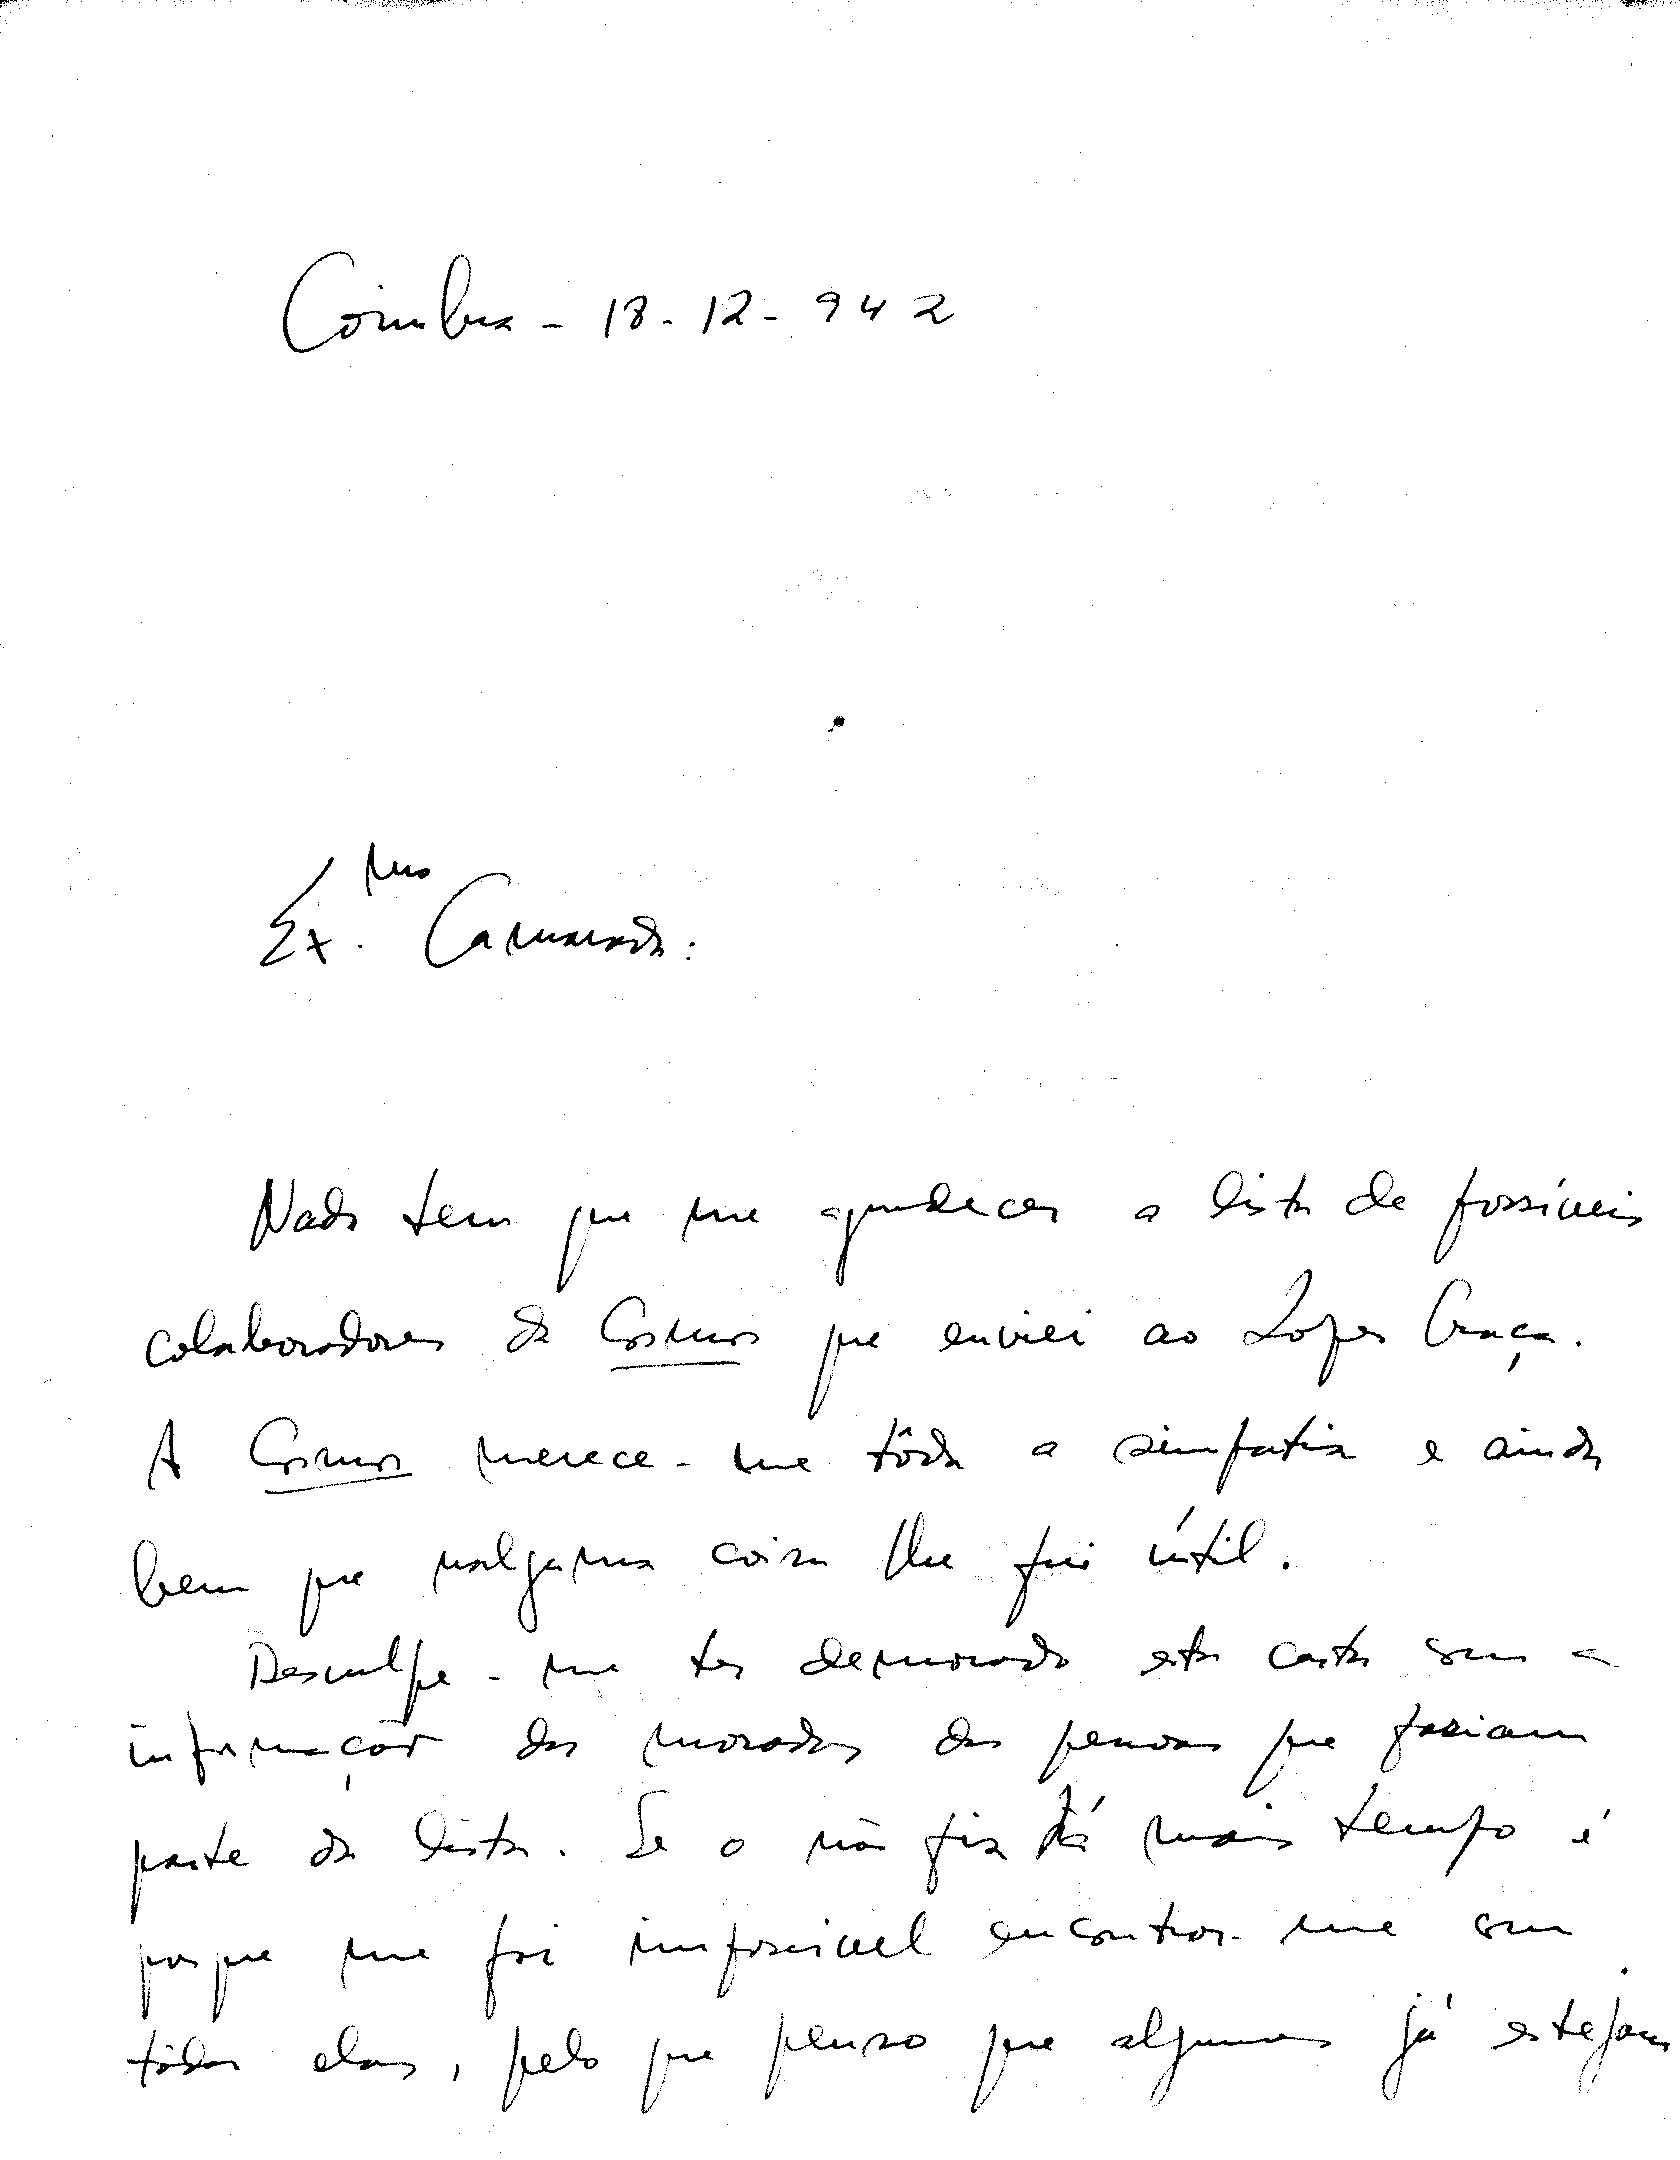 Coimbra - 18-12-942
Ex.mo Camarada:
Nada tem que me agradecer a lista de possíveis
colaboradores da Cosmos que enviei ao Lopes Graça.
A Cosmos merece-me tôda a simpatia e ainda
bem que nalguma coisa lhe fui útil.
Desculpe-me ter demorado esta carta com a
informação das moradas das pessoas que faziam
parte da lista. Se o não fiz há mais tempo é
porque me foi impossível encontrar-me com
tôdas elas, pelo que penso que algumas já estejam